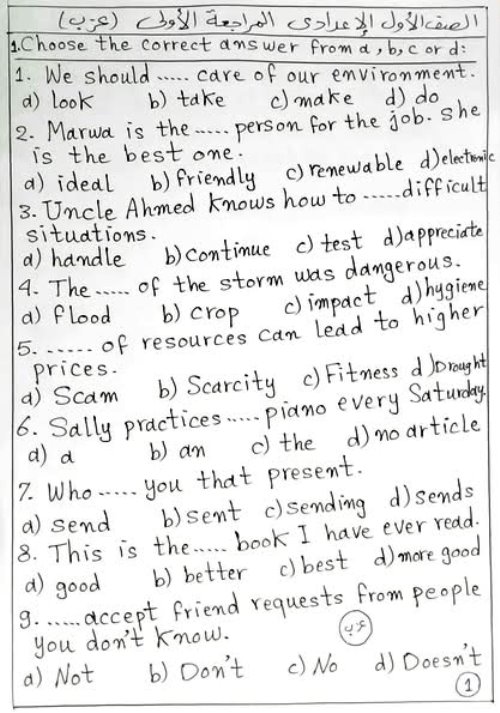 الصف الأول الإعدادى المراجعة الأولى (عزب)
1.Choose the correct answer from a, b, c or d:
1. We should ..... care of our environment.
a) look b) take c) make d) do
2. Marwa is the ..... person for the job. she
is the best one.
a) ideal b) friendly c) renewable d) electronic
3. Uncle Ahmed knows how to ..... difficult
situations.
a) handle b) continue c) test d) appreciate
4. The ..... of the storm was dangerous.
a) flood b) crop c) impact d) hygiene
5. ...... of resources can lead to higher
prices.
a) Scam b) Scarcity c) Fitness d) Drought
6. Sally practices ..... piano every Saturday.
a) a b) an c) the d) no article
7. Who ..... you that present.
a) send b) sent c) sending d) sends
8. This is the ..... book I have ever read.
a) good b) better c) best d) more good
9. ..... accept friend requests from people
you don't know.
عزب
a) Not b) Don't c) No d) Doesn't
1